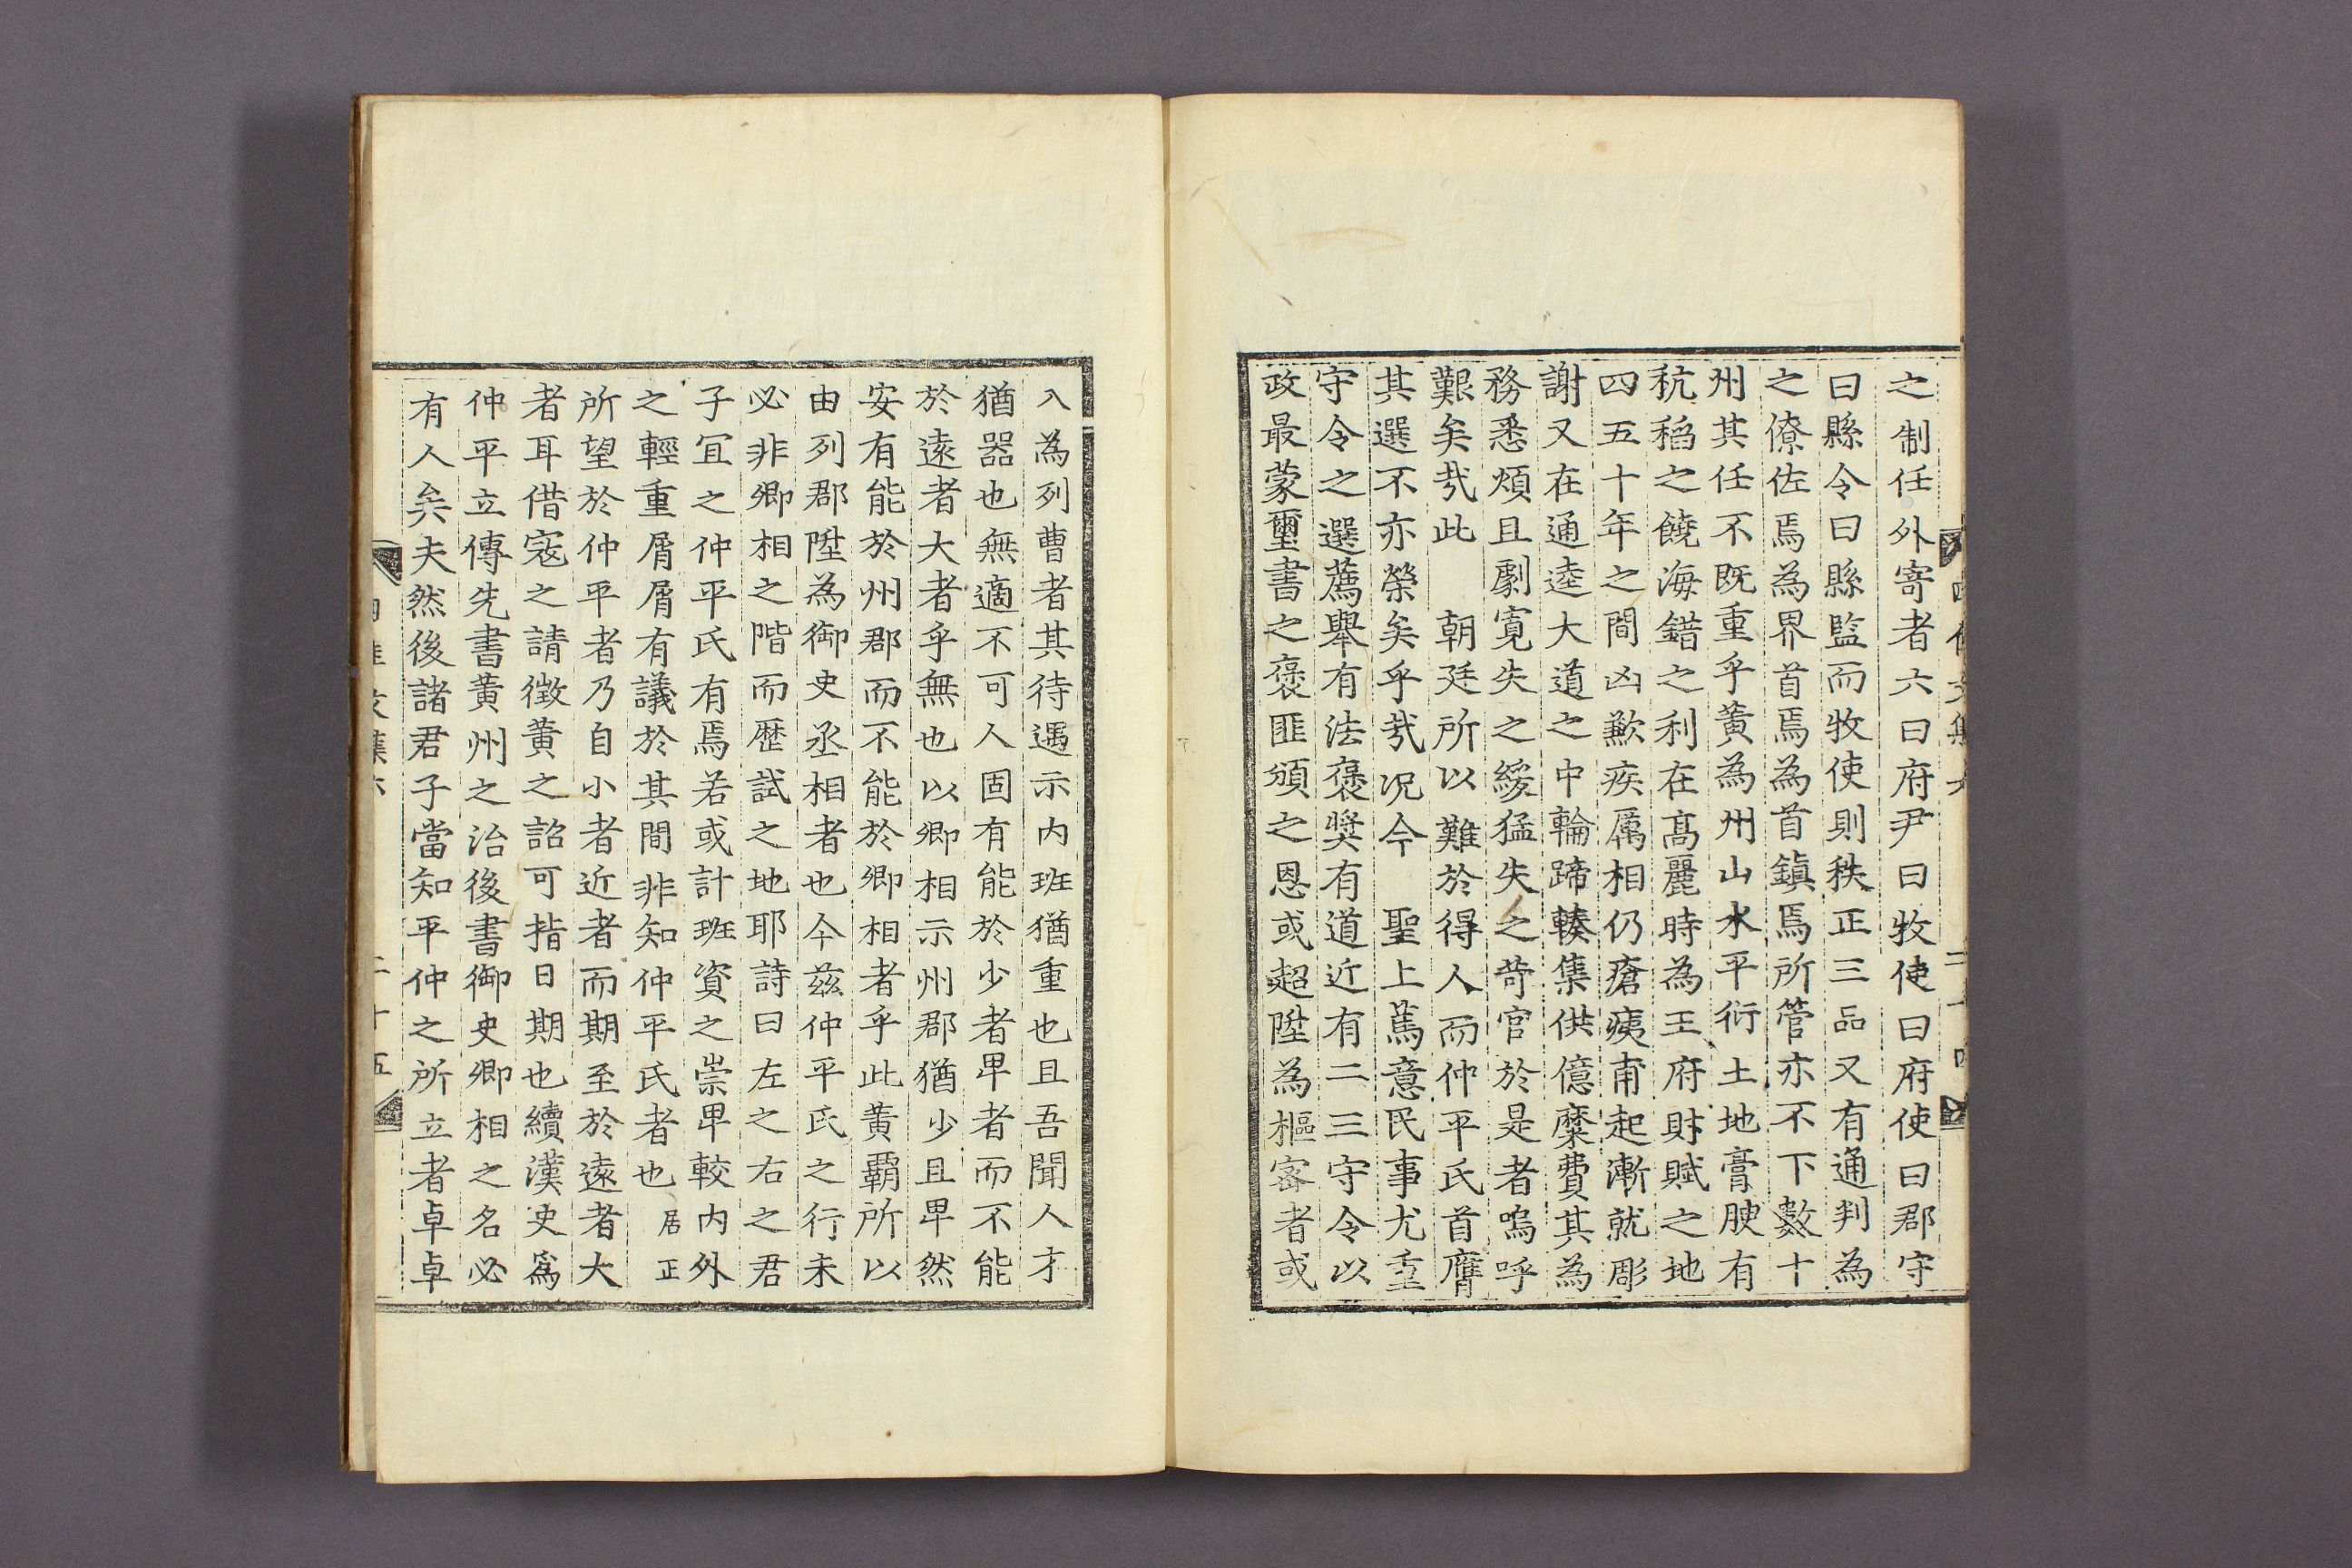 之制任外寄者六曰府尹曰牧使曰府使曰郡守
曰縣令曰縣監而牧使則秩正三品又有通判為
之僚佐焉為界首焉為首鎮焉所管亦不下數十
州其任不既重乎黃為州山水平衍土地膏腴有
秔稻之饒海錯之利在高麗時為王府財賦之地
四五十年之間凶歉疾厲相仍瘡痍甫起漸就彫
謝又在通逵大道之中輪蹄輳集供億糜費其為
務悉煩且劇寬失之緩猛失之苛官於是者嗚呼
艱矣㢤此 朝廷所以難於得人而仲平氏首膺
其選不亦榮矣乎㢤況今 聖上篤意民事尤重
守令之選薦舉有法褒獎有道近有二三守令以
政最蒙璽書之褒匪頒之恩或超陞為樞密者或
入為列曹者其待遇示內班猶重也且吾聞人才
猶器也無適不可人固有能於少者卑者而不能
於遠者大者乎無也以卿相示州郡猶少且卑然
安有能於州郡而不能於卿相者乎此黃霸所以
由列郡陞為御史丞相者也今茲仲平氏之行未
必非卿相之階而歷試之地耶詩曰左之右之君
子冝之仲平氏有焉若或計班資之崇卑較內外
之輕重屑屑有議於其間非知仲平氏者也 居正
所望於仲平者乃自小者近者而期至於遠者大
者耳借寇之請徵黃之詔可指日期也續漢史爲
仲平立傳先書黃州之治後書御史卿相之名必
有人矣夫然後諸君子當知平仲之所立者卓卓
二十五